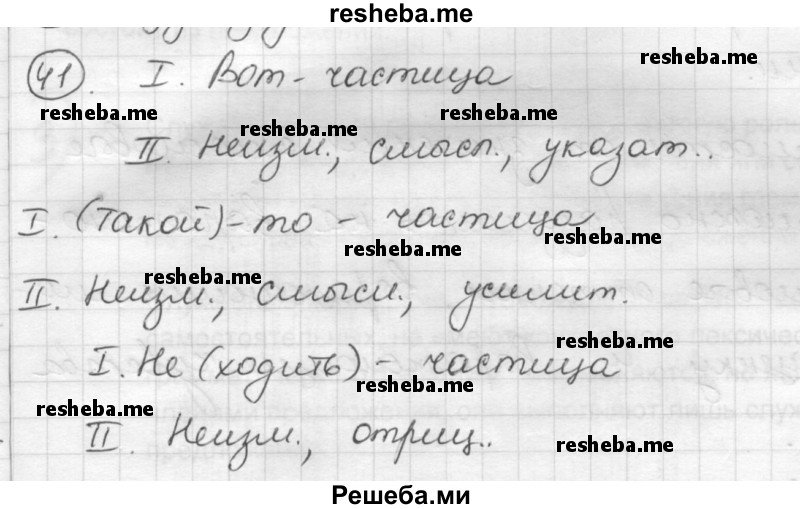 resheba.me
41. I. Вот - частица
resheba.me
resheba.me resheba.me resheba.me
II. Неизм., смысл., указат..
I. (такой)-то - частица
resheba.me resheba.me
resheba.me
II. Неизм., смысл., усилит.
resheba.me
I. Не (ходить) - частица
resheba.me
resheba.me
II. Неизм., отриц..
resheba.me
Решеба.ми